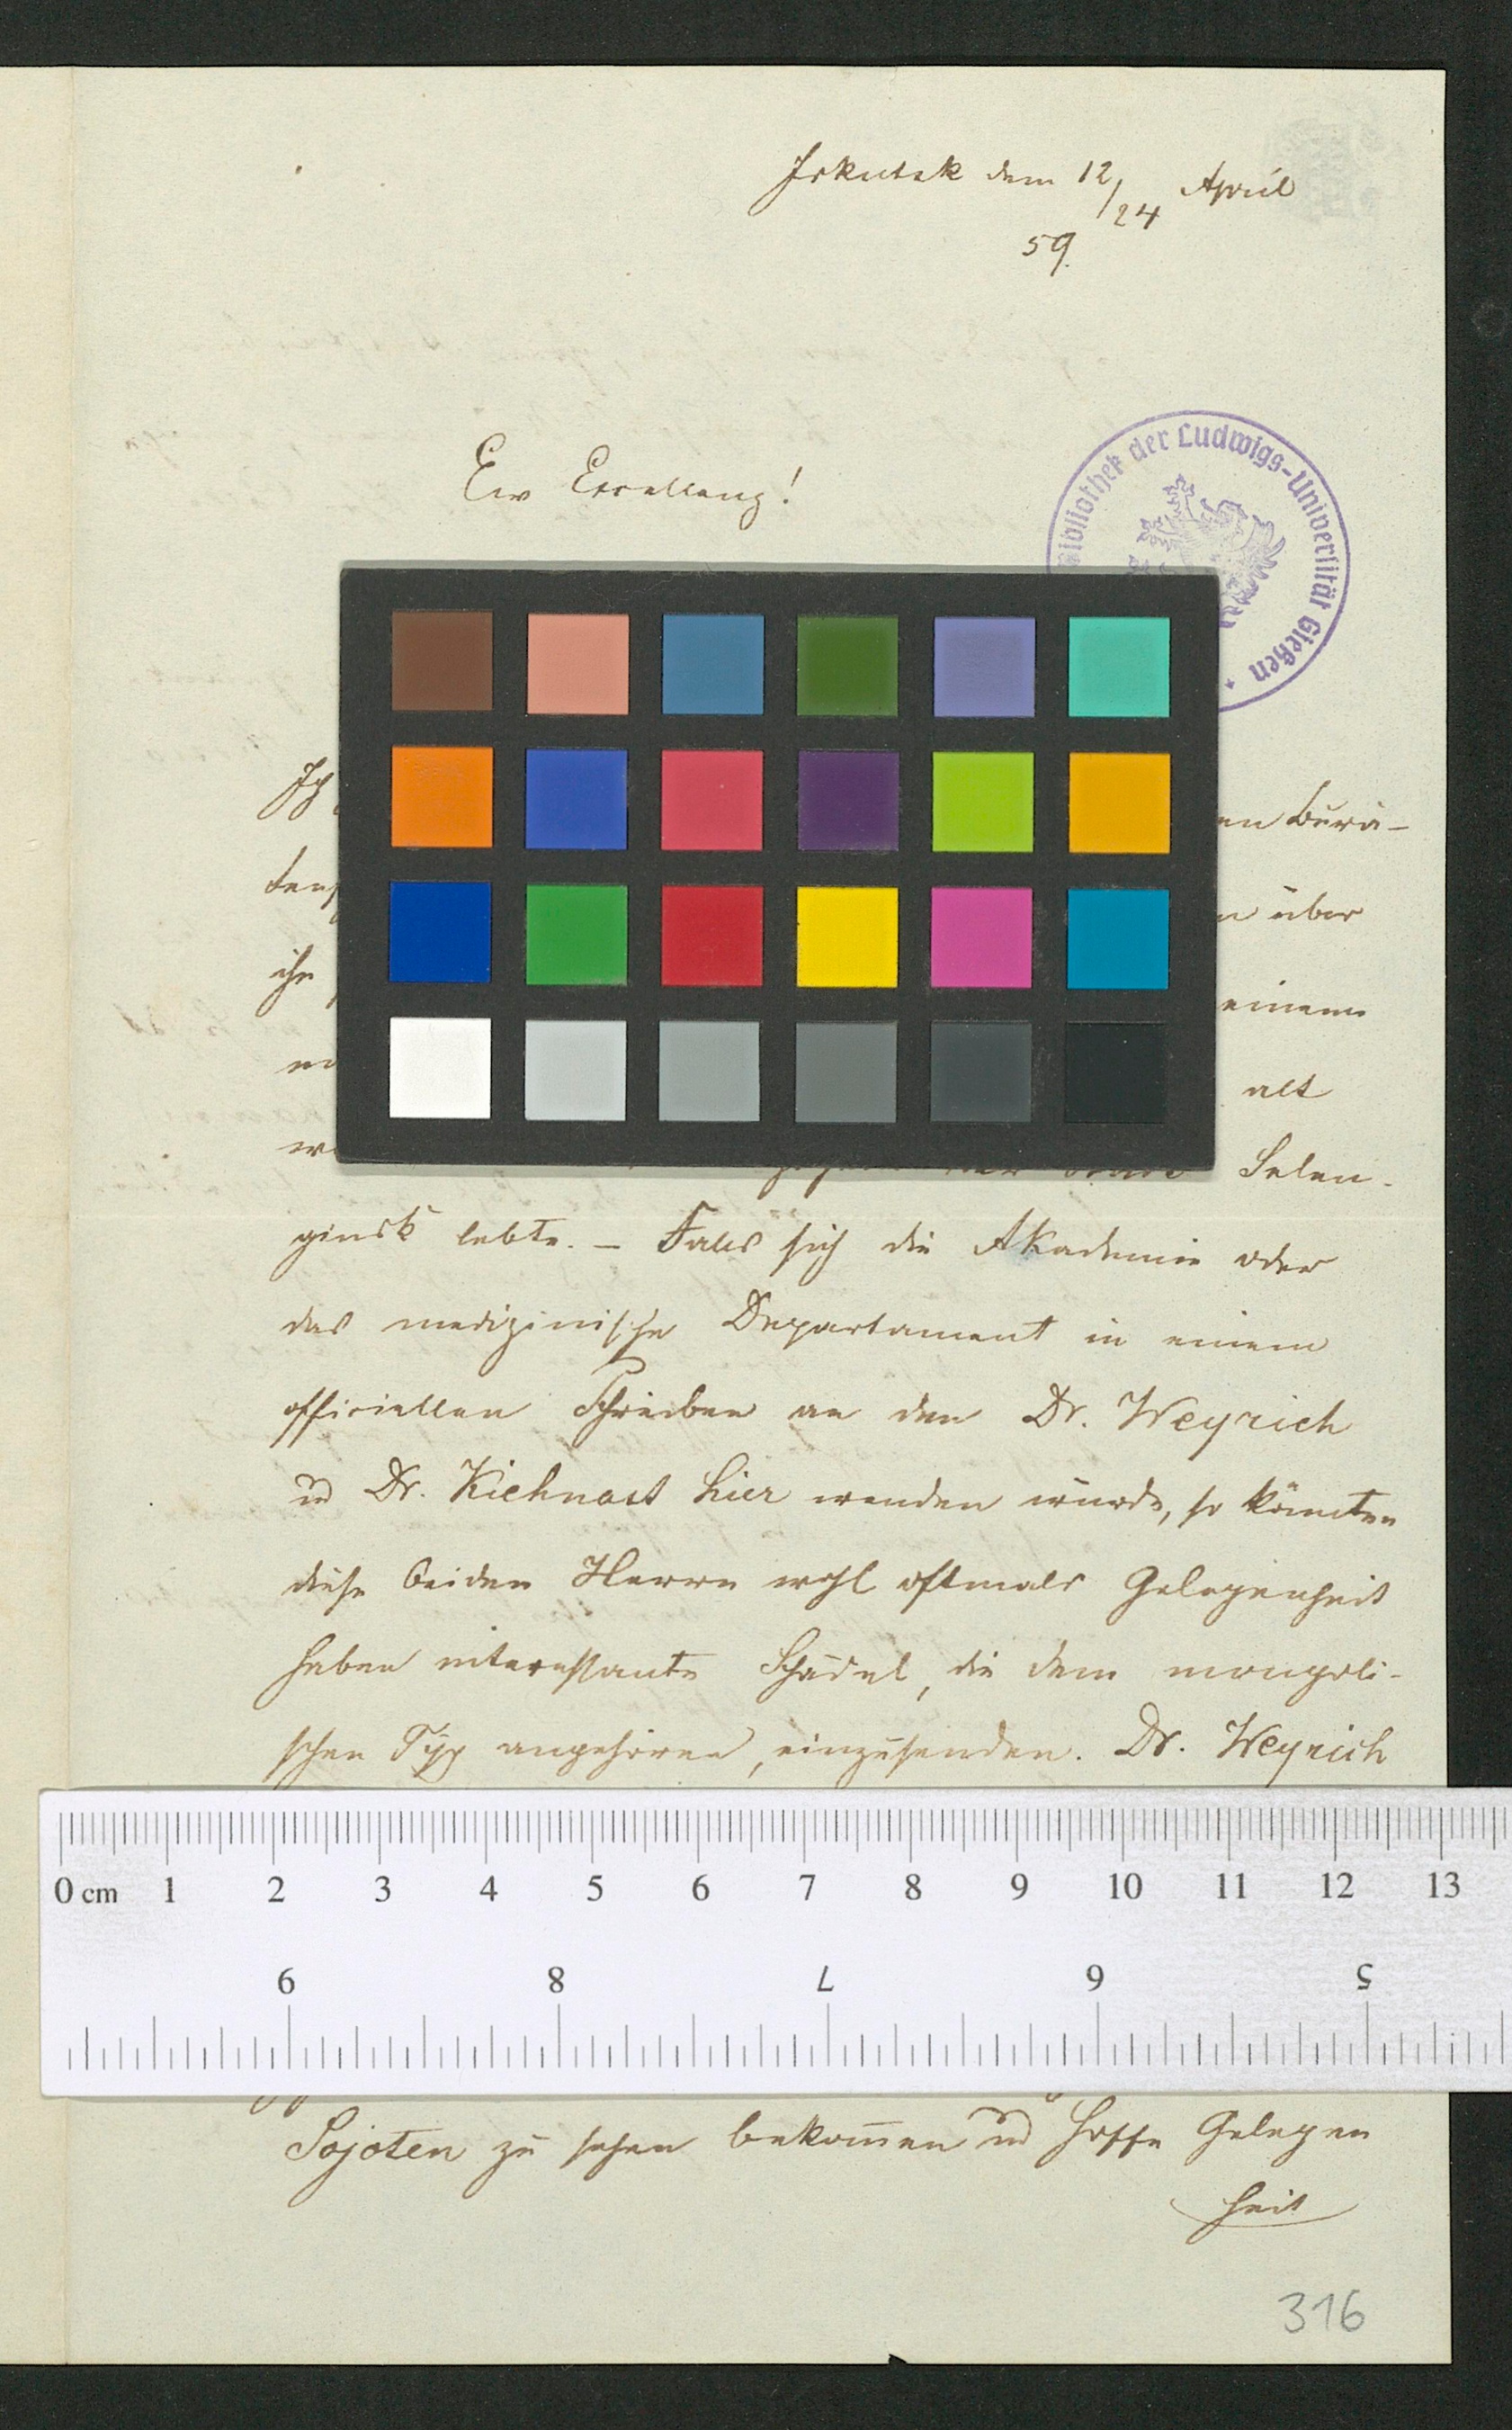 Irkutsk dem 12/24 April
59.
Ew Excellenz!
Bibliothek der Ludwigs-Universität Gießen
Ich
en Burä-
tens
n über
ihn
einem
alt
Selen-
ginsk lebte. – Falls sich die Akademie oder
das medizinische Departament in einem
officiellen Schreiben an den Dr. Weyrich
und Dr. Kiehnast hier wenden würde, so könnten
diese beiden Herren wohl oftmals Gelegenheit
haben interessante Schädel, die dem mongoli-
schen Typ angehören, einzusenden. Dr. Weyrich
0 cm 1 2 3 4 5 6 7 8 9 10 11 12 13
9 8 7 6 5
Sojoten zu sehen bekom̅en und hoffe Gelegen
heit
316